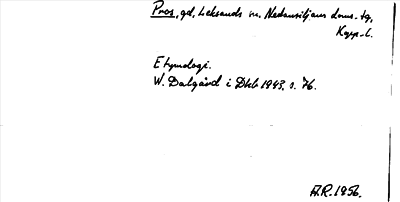 Pros, gd, Leksands sn. Nedansiljans doms. tg,
Kopp. l.
Etymologi.
W. Dalgård i Dhb 1943, s. 76.
A.R. 1956.